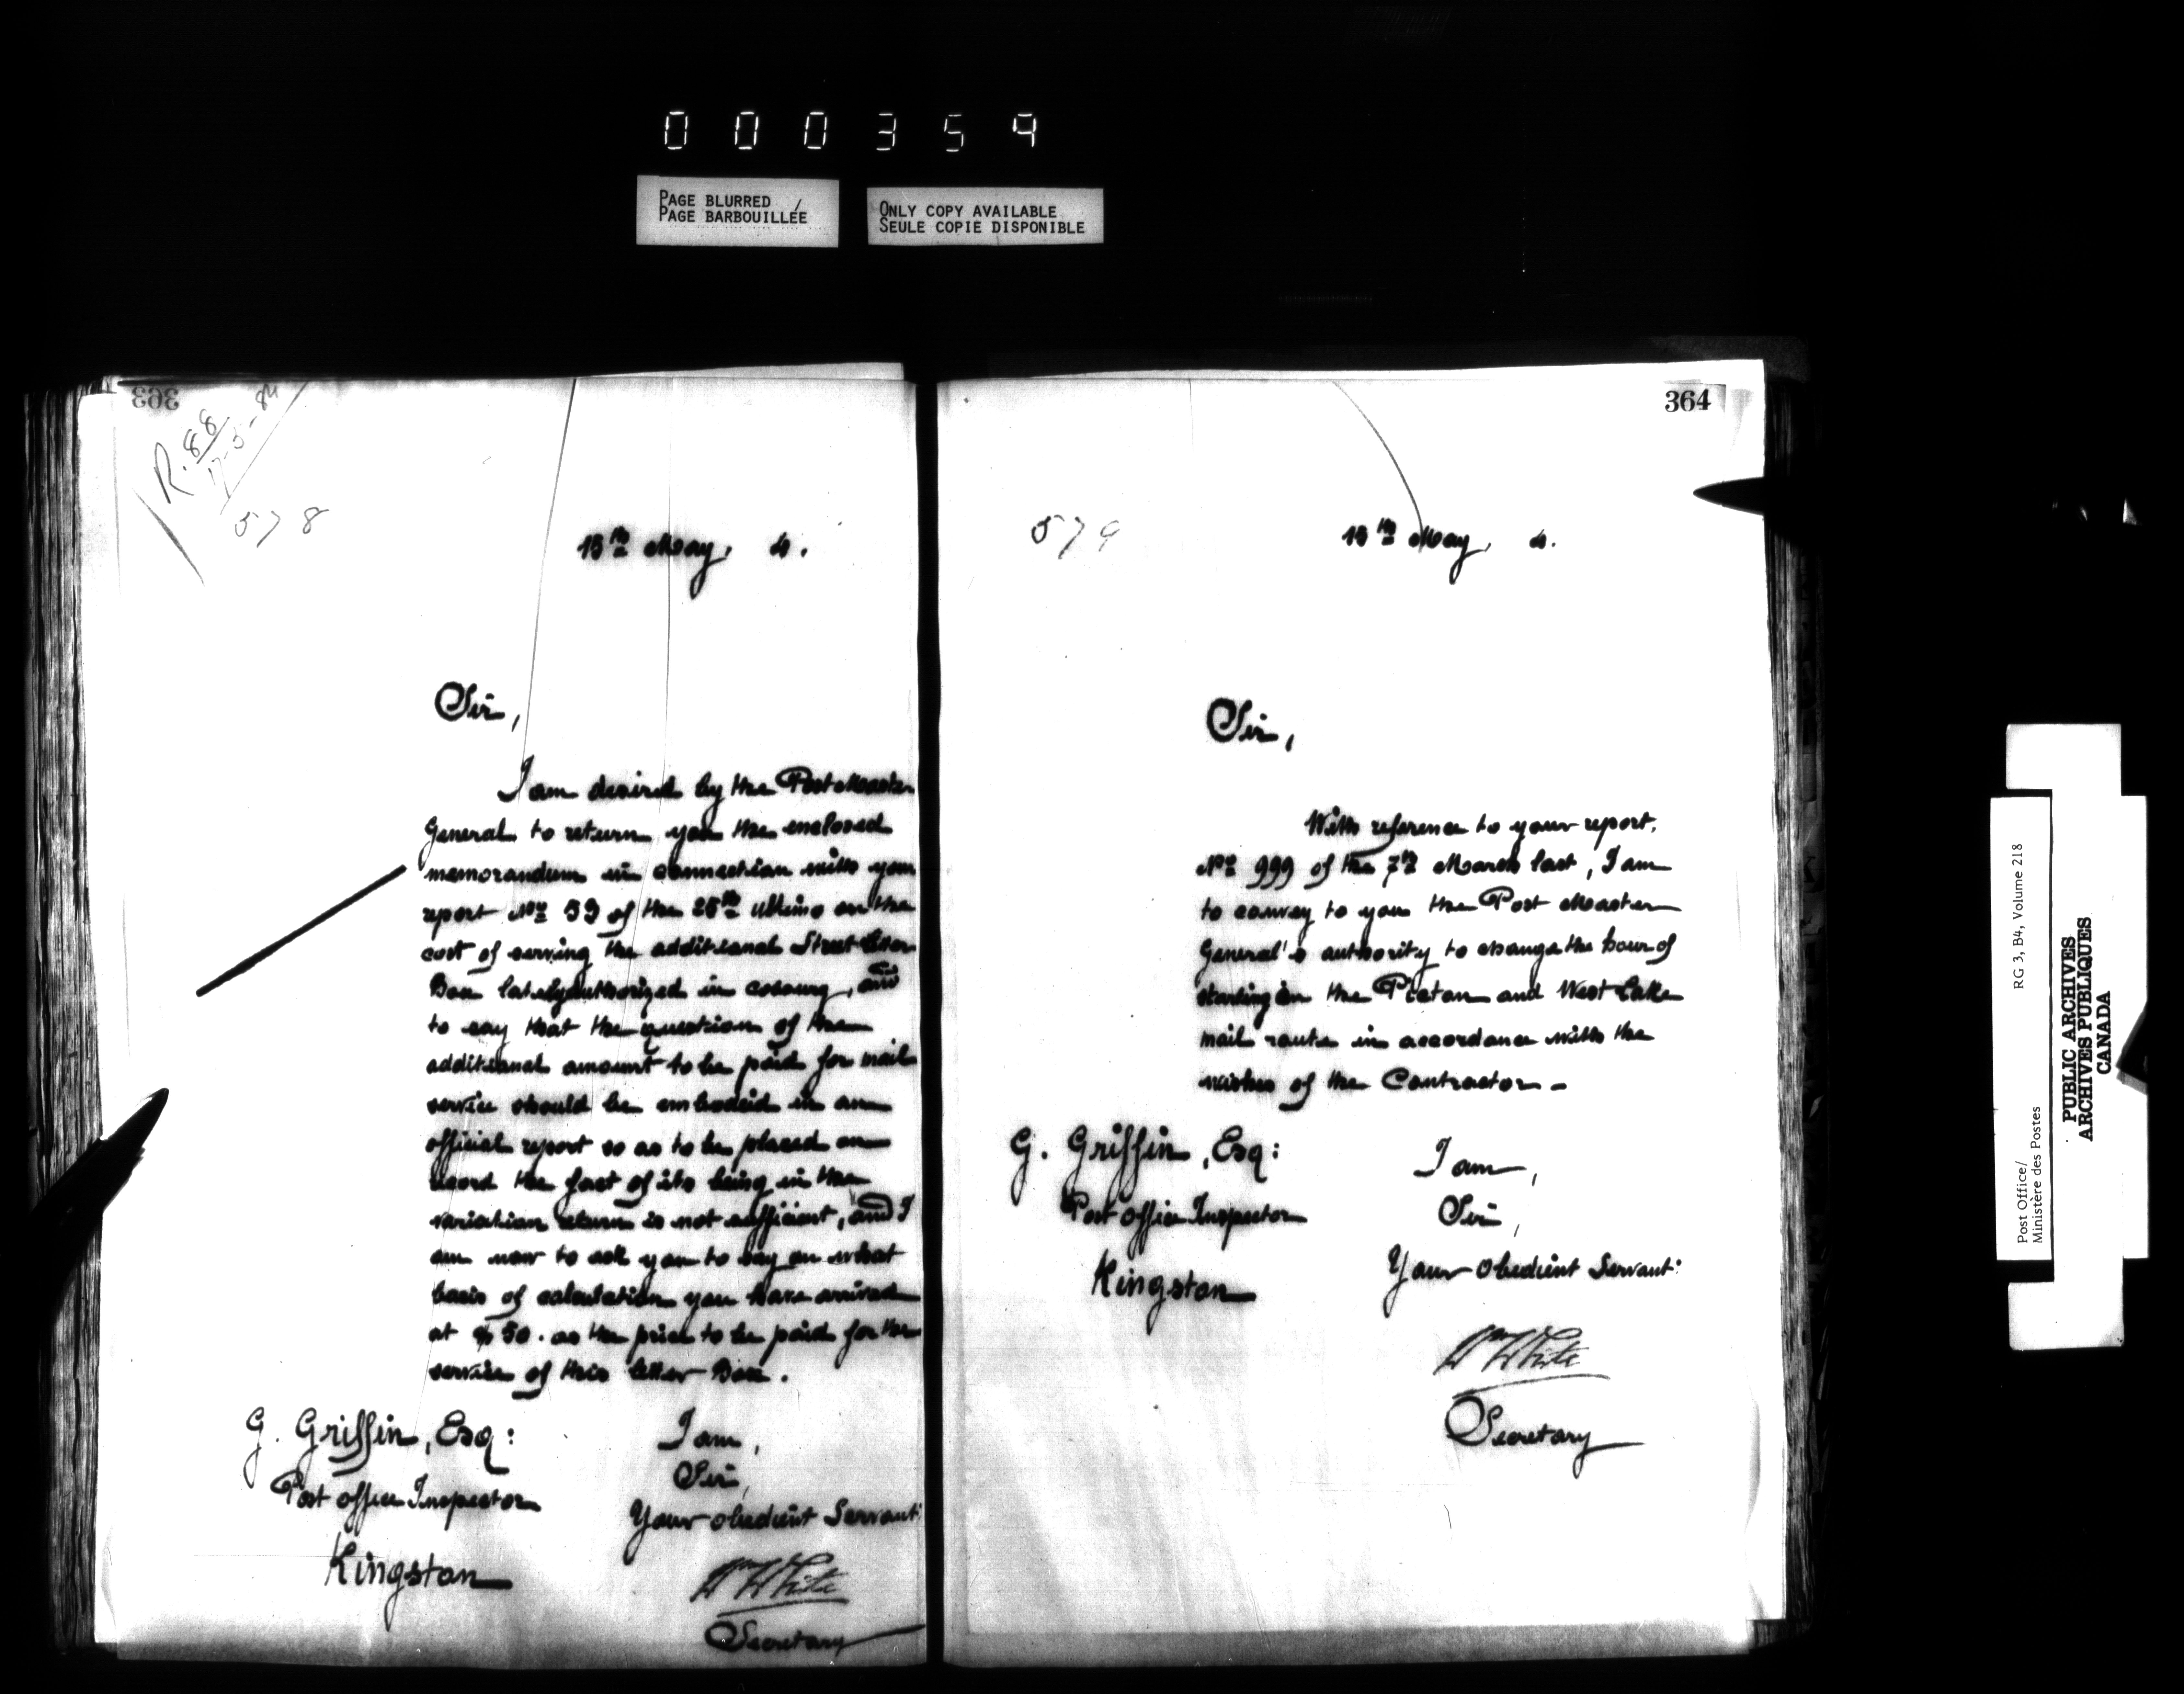 000359
PAGE BLURRED /
PAGE BARBOUILLÉE
ONLY COPY AVAILABLE
SEULE COPIE DISPONIBLE
363
R. 88
17-5-84
578
15th May, 4.
Sir,
I am desired by the Post Master
General to return you the enclosed
memorandum in connection with your
report No 59 of the 25th ultimo on the
cost of serving the additional Street Letter
Box lately authorized in Cobourg, and
to say that the question of the
additional amount to be paid for mail
service should be embodied in an
official report so as to be placed on
record the fact of its being in the
variation return is not sufficient, and I
am now to ask you to say on what
basis of calculation you have arrived
at $50. as the price to be paid for the
service of this letter Box.
G. Griffin, Esq:
Post office Inspector
Kingston
I am,
Sir,
Your obedient Servant:
Wm White
Secretary
364
579
15th May, 4.
Sir,
With reference to your report,
No 999 of the 7th March last, I am
to convey to you the Post Master
General's authority to change the hour of
starting on the Picton and West Lake
mail route in accordance with the
wishes of the Contractor -
G. Griffin, Esq:
Post office Inspector
Kingston
I am,
Sir,
Your obedient Servant:
Wm White
Secretary
Post Office/
Ministère des Postes
RG 3, B4, Volume 218
PUBLIC ARCHIVES
ARCHIVES PUBLIQUES
CANADA